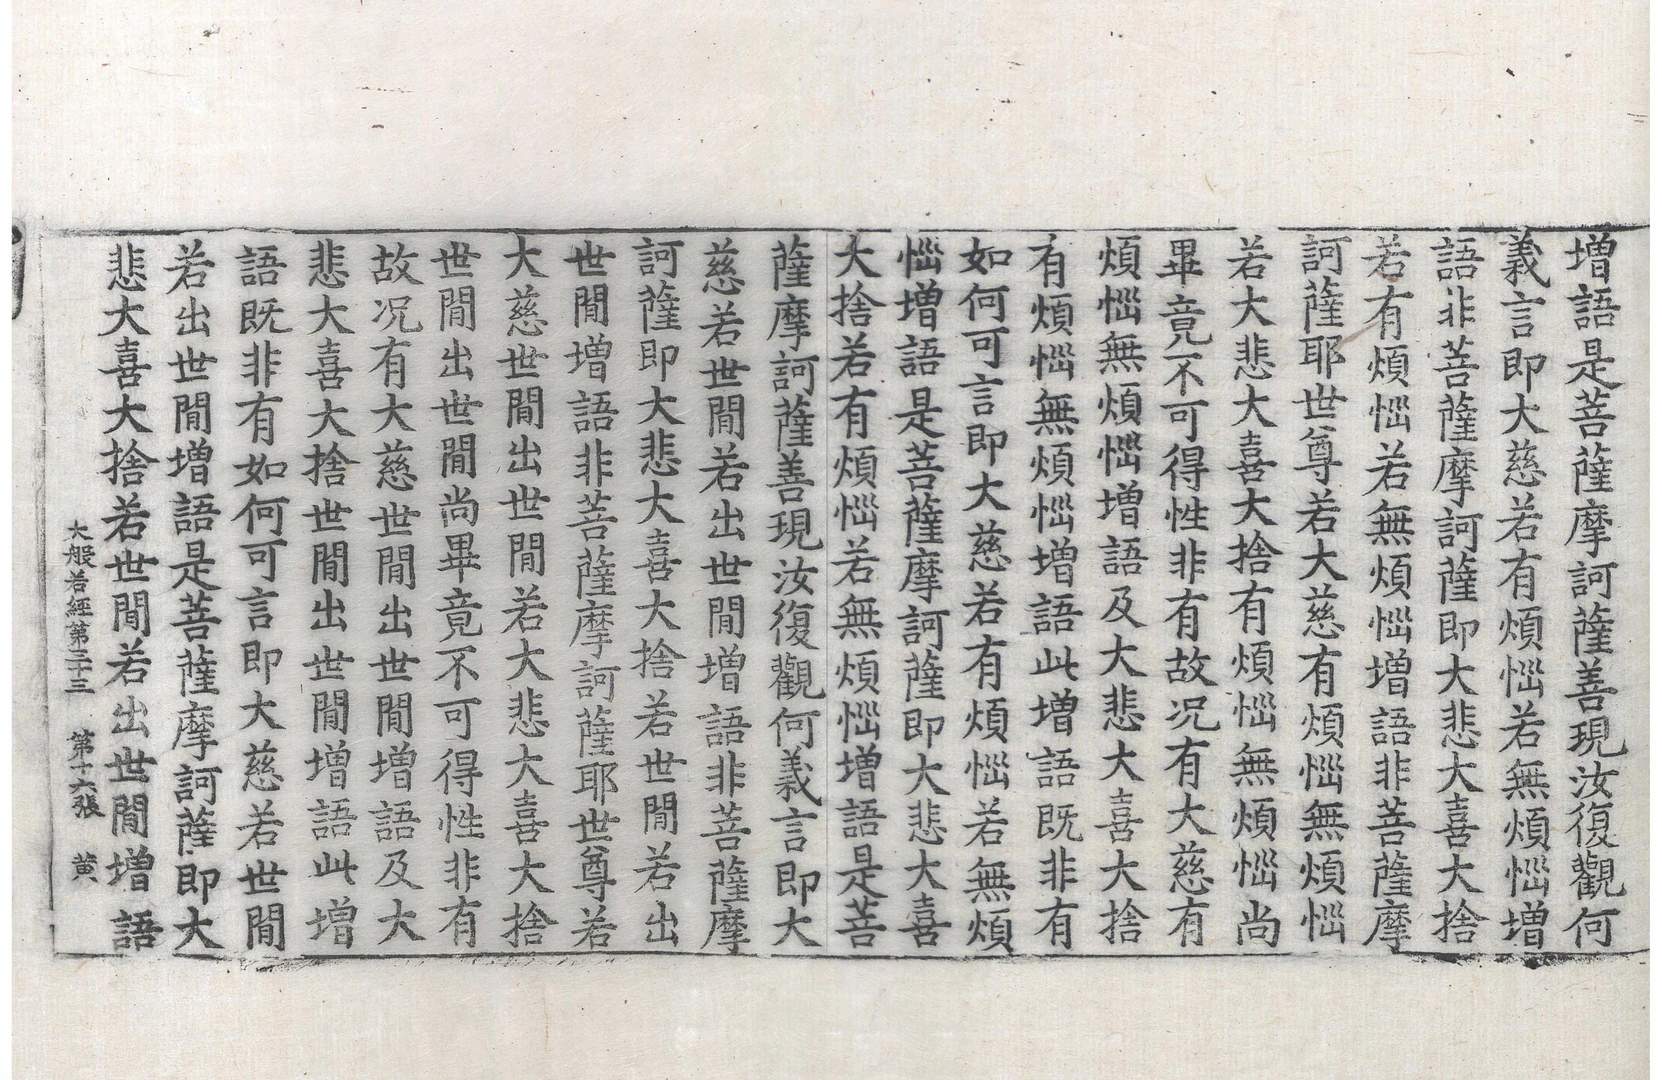 增語是菩薩摩訶薩善現汝復觀何
義言即大慈若有煩惱若無煩惱增
語非菩薩摩訶薩即大悲大喜大捨
若有煩惱若無煩惱增語非菩薩摩
訶薩耶世尊若大慈有煩惱無煩惱
若大悲大喜大捨有煩惱無煩惱尚
畢竟不可得性非有故况有大慈有
煩惱無煩惱增語及大悲大喜大捨
有煩惱無煩惱增語此增語既非有
如何可言即大慈若有煩惱若無煩
惱增語是菩薩摩訶薩即大悲大喜
大捨若有煩惱若無煩惱增語是菩
薩摩訶薩善現汝復觀何義言即大
慈若世閒若出世閒增語非菩薩摩
訶薩即大悲大喜大捨若世閒若出
世閒增語非菩薩摩訶薩耶世尊若
大慈世閒出世閒若大悲大喜大捨
世閒出世閒尚畢竟不可得性非有
故况有大慈世閒出世閒增語及大
悲大喜大捨世閒出世閒增語此增
語既非有如何可言即大慈若世閒
若出世閒增語是菩薩摩訶薩即大
悲大喜大捨若世閒若出世閒增語
大般若經第三十三 第十六張 黃